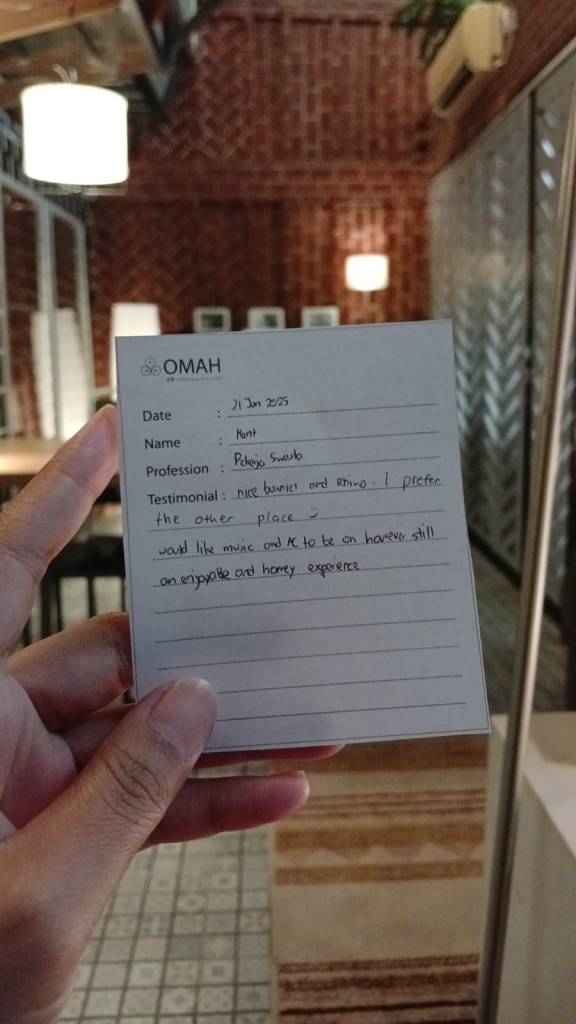 OMAH
Date : 21 Jan 2025
Name : Kent
Profession : Pekerja Swasta
Testimonial : nice bunnies and Rhino. I prefer
the other place
would like music and AC to be on however still
an enjoyable and homey experience